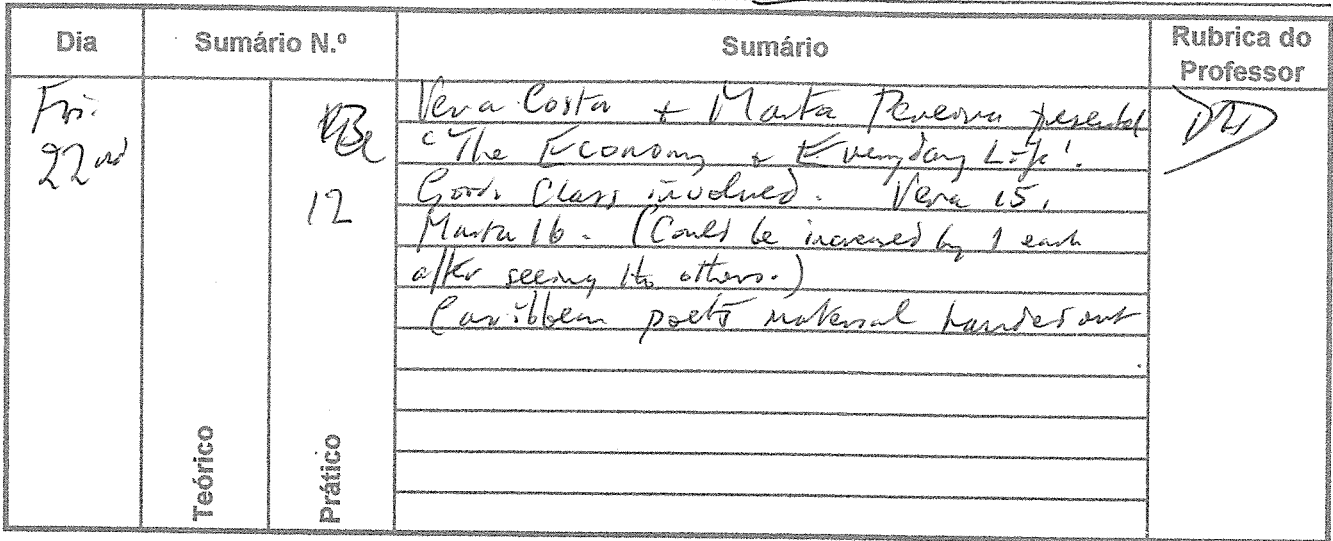 Dia Sumário N.º Sumário Rubrica do Professor
Fri. 22nd
12
Teórico
Prático
Vera Costa + Marta Pereira presented
'The Economy & Everyday Life'.
Good. Class involved. Vera 15,
Marta 16. (Could be increased by 1 each
after seeing the others.)
Caribbean poets material handed out